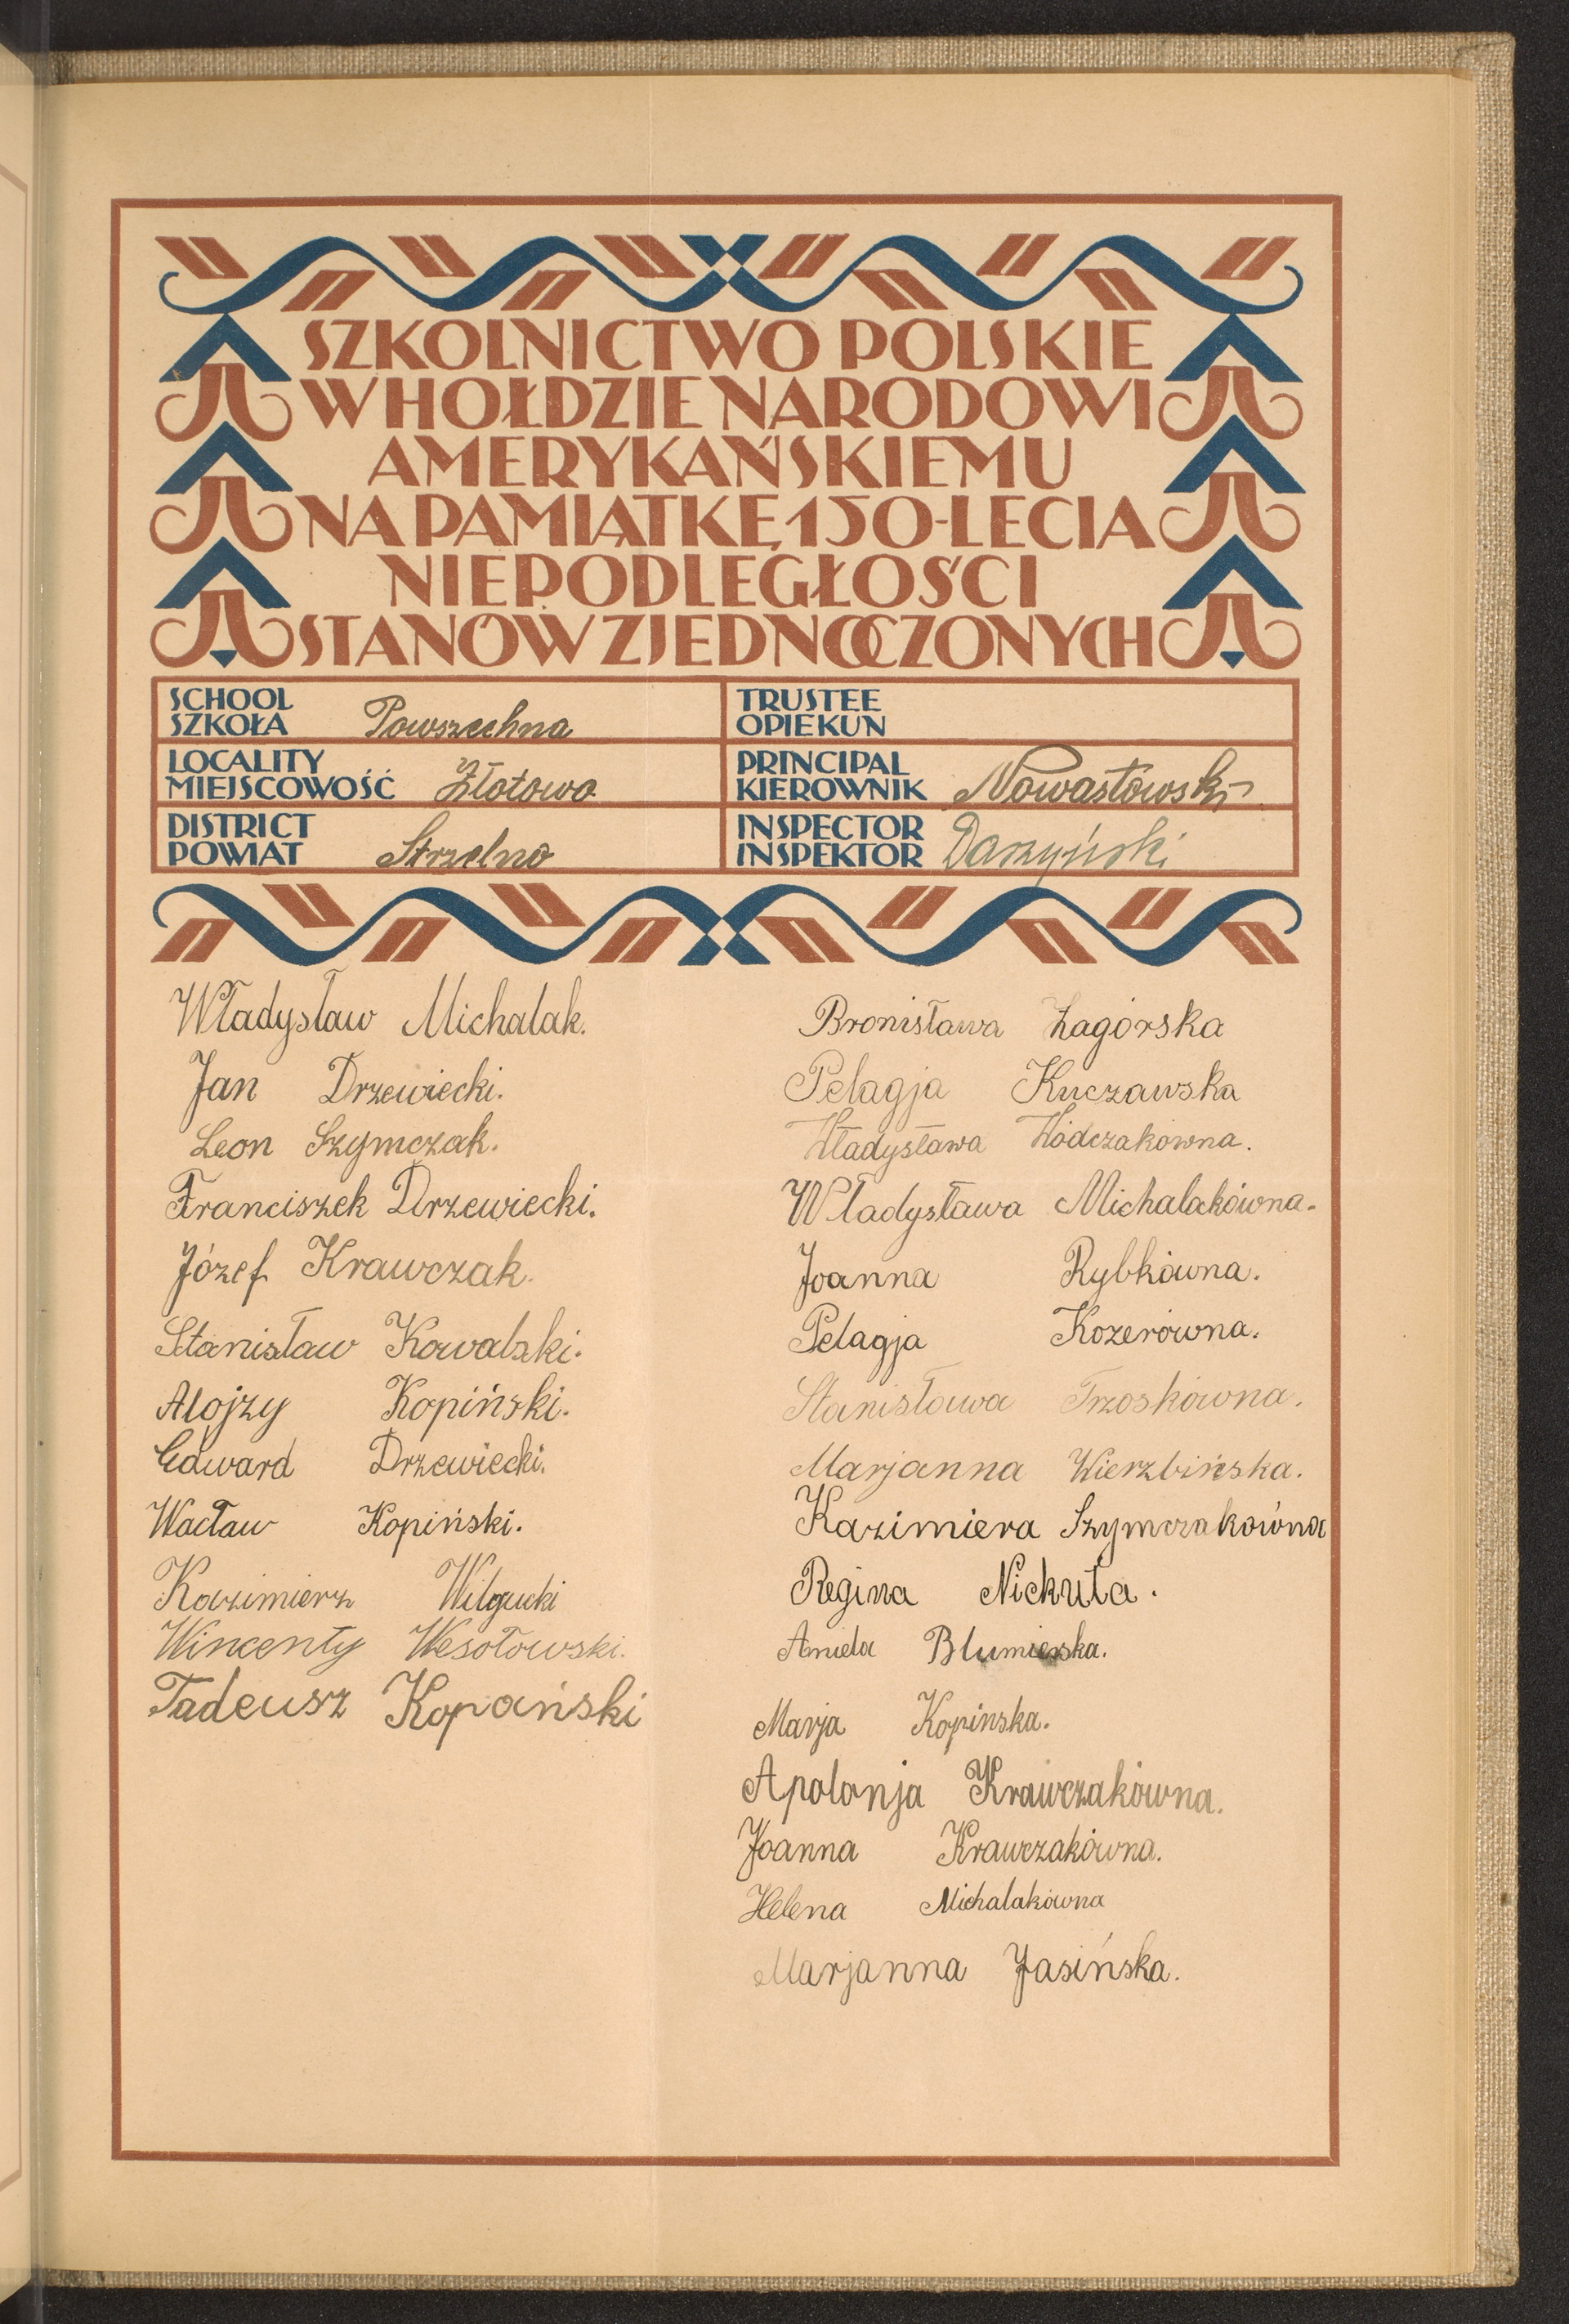 SZKOLNICTWO POLSKIE
W HOŁDZIE NARODOWI
AMERYKAŃSKIEMU
NA PAMIĄTKĘ 150-LECIA
NIEPODLEGŁOŚCI
STANÓW ZJEDNOCZONYCH
SCHOOL
SZKOŁA Powszechna
TRUSTEE
OPIEKUN
LOCALITY
MIEJSCOWOŚĆ Złotowo
PRINCIPAL
KIEROWNIK Nowastowski
DISTRICT
POWIAT Strzelno
INSPECTOR
INSPEKTOR Daszyński
Władysław Michalak.
Jan Drzewiecki.
Leon Szymczak.
Franciszek Drzewiecki.
Józef Krawczak.
Stanisław Kowalski.
Alojzy Kopiński.
Edward Drzewiecki.
Wacław Kopiński.
Kazimierz
Wincenty Wesołowski.
Tadeusz Kopański
Bronisława Zagórska
Pelagja Kuczawska
Władysława Włódczakówna.
Władysława Michalakówna.
Joanna Rybkówna.
Pelagja Kozerówna.
Stanisława Trzoskówna.
Marjanna Wierzbińska.
Kazimiera Szymczakówna
Regina Niekuła.
Aniela
Marja Kopinska.
Apolonja Krawczakówna.
Joanna Krawczakówna.
Helena Michalakówna
Marjanna Jasińska.